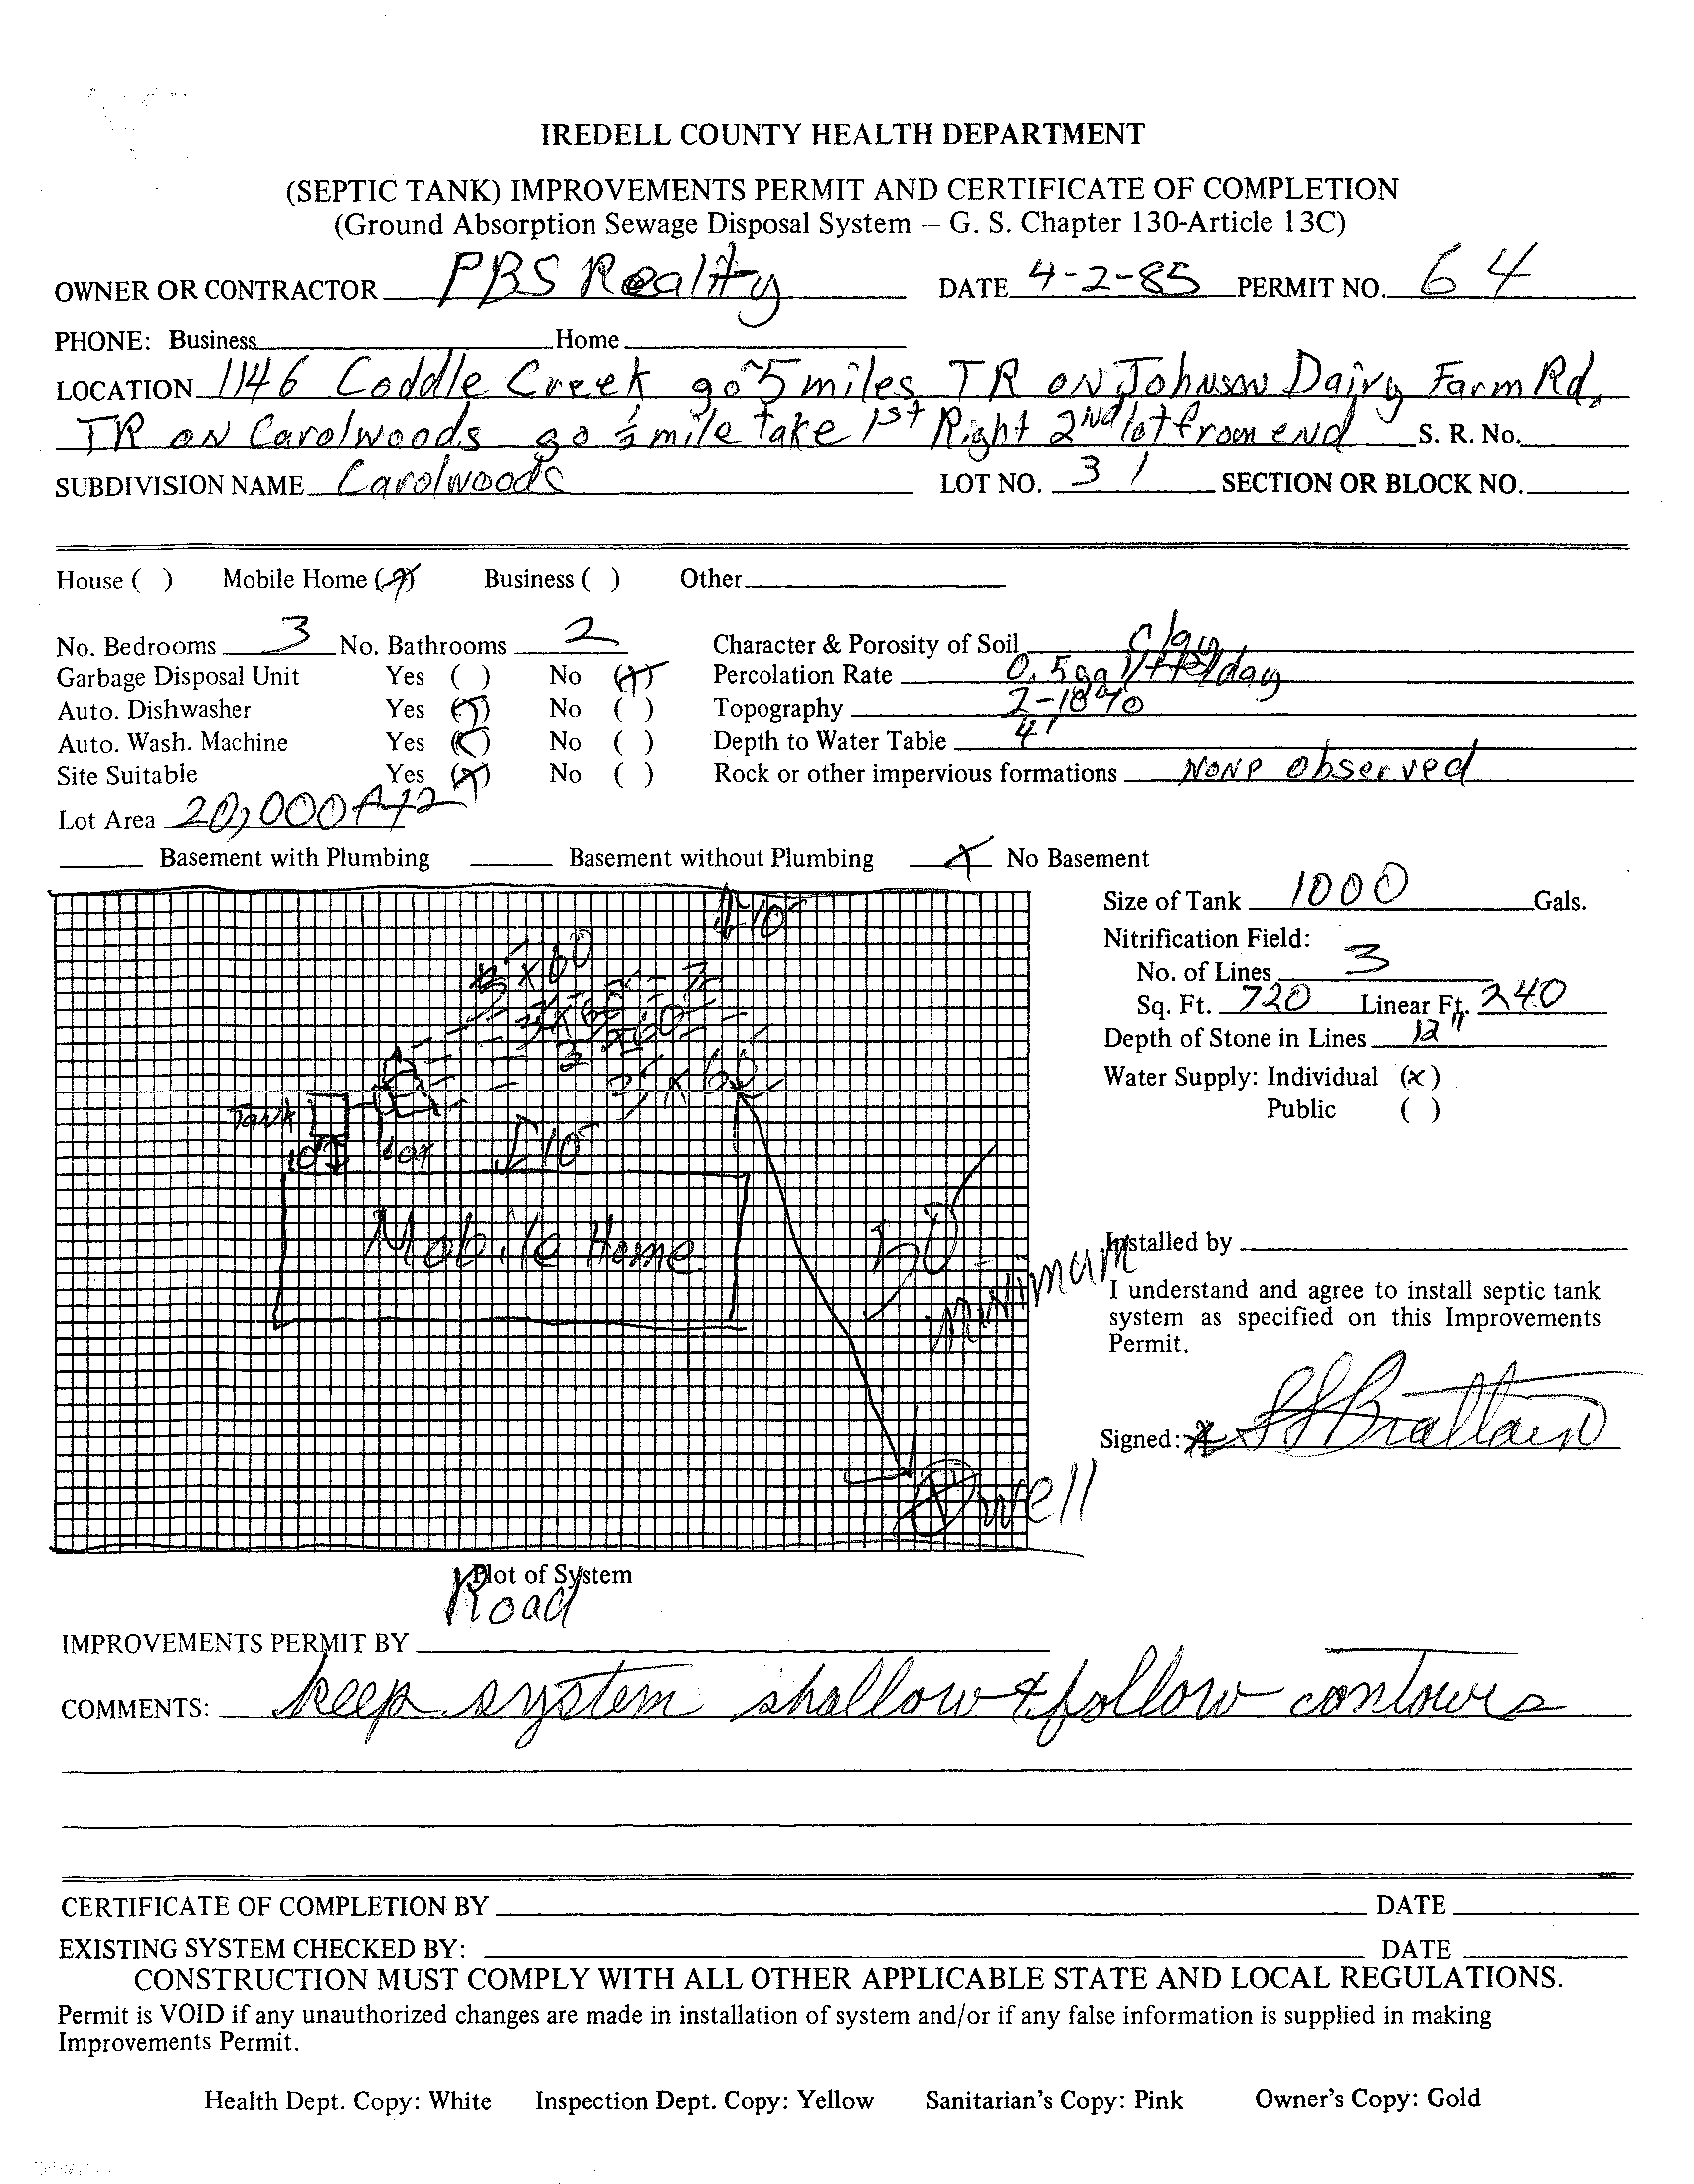 IREDELL COUNTY HEALTH DEPARTMENT
(SEPTIC TANK) IMPROVEMENTS PERMIT AND CERTIFICATE OF COMPLETION
(Ground Absorption Sewage Disposal System – G. S. Chapter 130-Article 13C)
OWNER OR CONTRACTOR PBS Realty DATE 4-2-85 PERMIT NO. 64
PHONE: Business Home
LOCATION 1146 Coddle Creek go ~5 miles TR on Johnson Dairy Farm Rd.
TR on Carolwoods go ½ mile take 1st Right 2nd lot from end S. R. No.
SUBDIVISION NAME Carolwoods LOT NO. 31 SECTION OR BLOCK NO.
House ( ) Mobile Home (X) Business ( ) Other
No. Bedrooms 3 No. Bathrooms 2 Character & Porosity of Soil clay
Garbage Disposal Unit Yes ( ) No (X) Percolation Rate 0.5 gal/ft2/day
Auto. Dishwasher Yes (X) No ( ) Topography 2-10%
Auto. Wash. Machine Yes (X) No ( ) Depth to Water Table 4'
Site Suitable Yes (X) No ( ) Rock or other impervious formations None observed
Lot Area 20,000 ft2
Basement with Plumbing Basement without Plumbing X No Basement
Size of Tank 1000 Gals.
Nitrification Field:
No. of Lines 3
Sq. Ft. 720 Linear Ft. 240
Depth of Stone in Lines 12"
Water Supply: Individual (x)
Public ( )
10'
3' x 60
3 x 60
3' x 60'
Tank
10'
box
10'
Mobile Home
50
minimum
well
Installed by
I understand and agree to install septic tank
system as specified on this Improvements
Permit.
Signed: x Brattain
Plot of System
Road
IMPROVEMENTS PERMIT BY
COMMENTS: keep system shallow & follow contours
CERTIFICATE OF COMPLETION BY DATE
EXISTING SYSTEM CHECKED BY: DATE
CONSTRUCTION MUST COMPLY WITH ALL OTHER APPLICABLE STATE AND LOCAL REGULATIONS.
Permit is VOID if any unauthorized changes are made in installation of system and/or if any false information is supplied in making
Improvements Permit.
Health Dept. Copy: White Inspection Dept. Copy: Yellow Sanitarian's Copy: Pink Owner's Copy: Gold